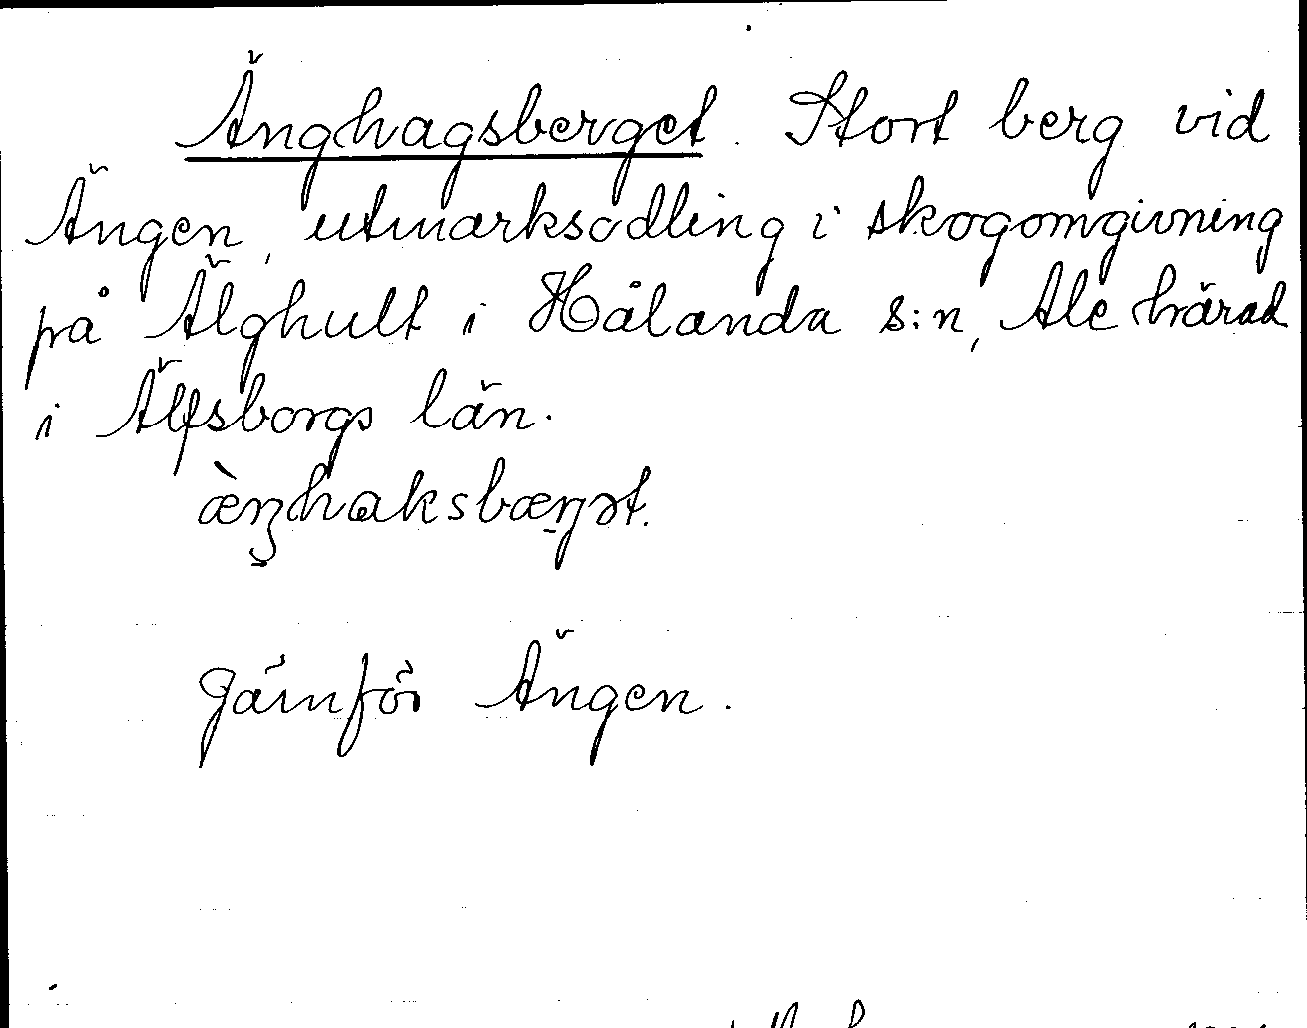 Änghagsberget. Stort berg vid
Ängen, utmarksodling i skogomgivning
på Älghult i Hålanda s:n, Ale härad
i Älfsborgs län.
æ̀ŋhaksbæŋət.
Jämför Ängen.